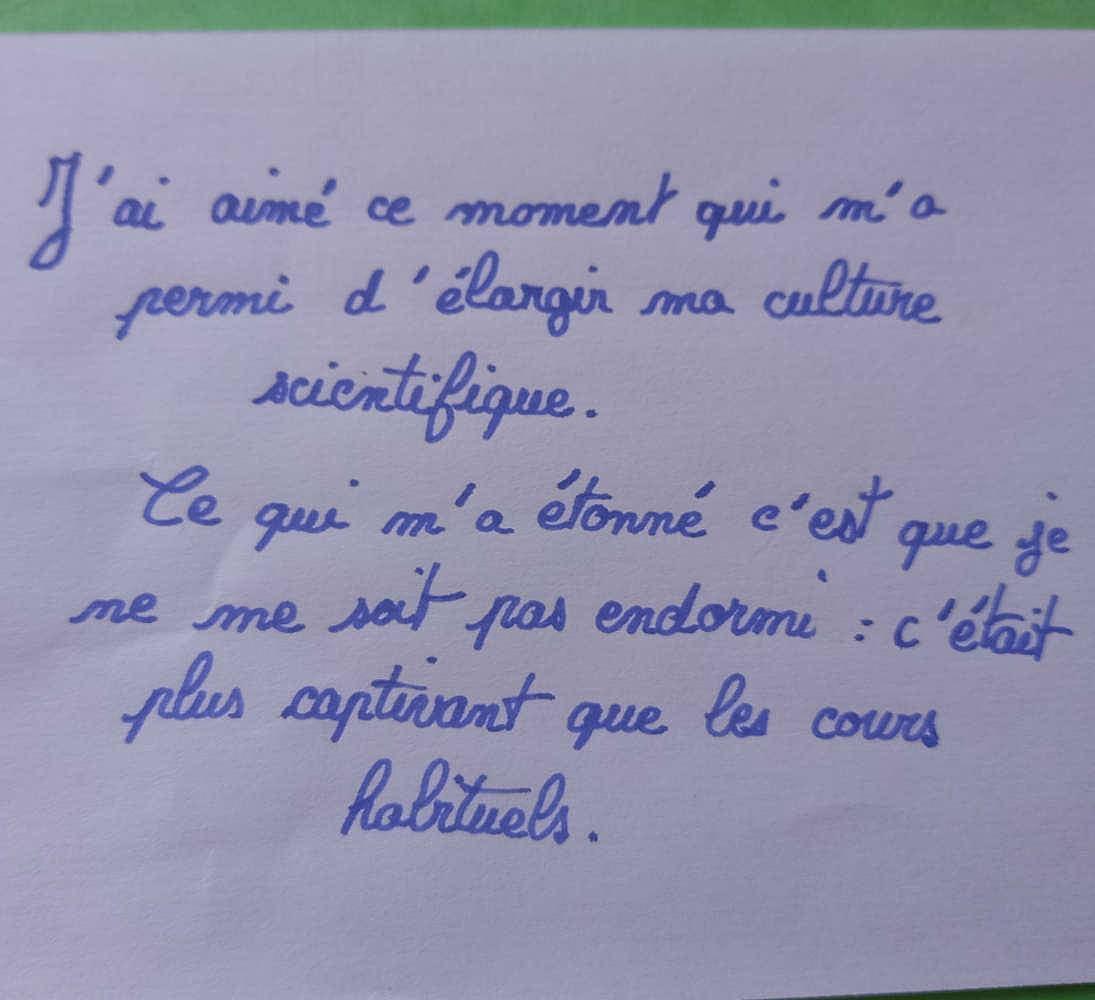 J'ai aimé ce moment qui m'a
permi d'élargir ma culture
scientifique.
Ce qui m'a étonné c'est que je
ne me soit pas endormi : c'était
plus captivant que les cours
habituels.